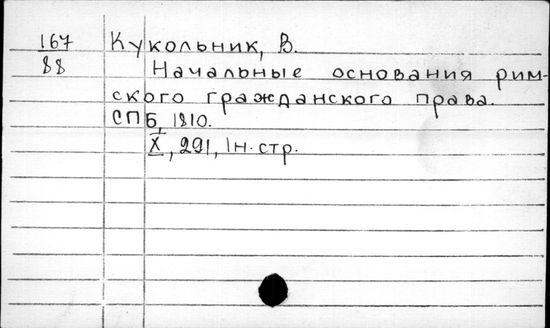 167 Кукольник, В.
88 Начальные основания рим-
ского гражданского права.
СПБ, 1810.
X, 291, 1н.стр.